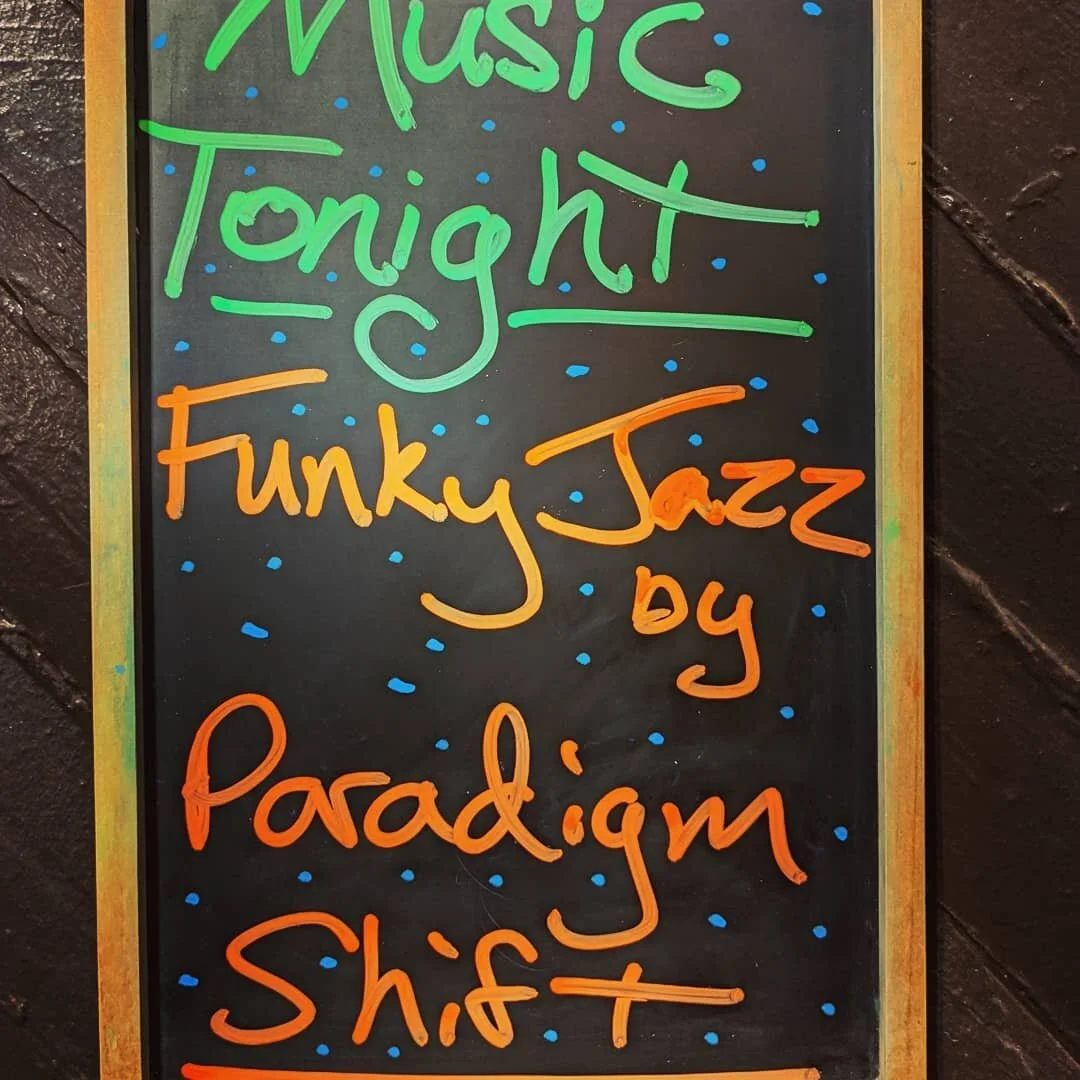 Music
Tonight
Funky Jazz
by
Paradigm
Shift